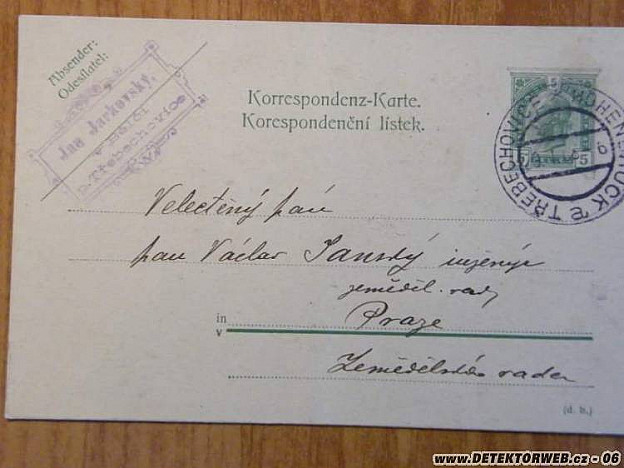 Absender:
Odesílatel:
Jan Jarkovský,
Třebechovice
Korrespondenz-Karte.
Korespondenční lístek.
5
5 5
TŘEBECHOVICE HOHENBRUCK
Velectěný pán
pan Václav Janský inženýr
zeměděl. rady
in Praze
v
Zemědělská rada
(d. b.)
www.DETEKTORWEB.cz - 06